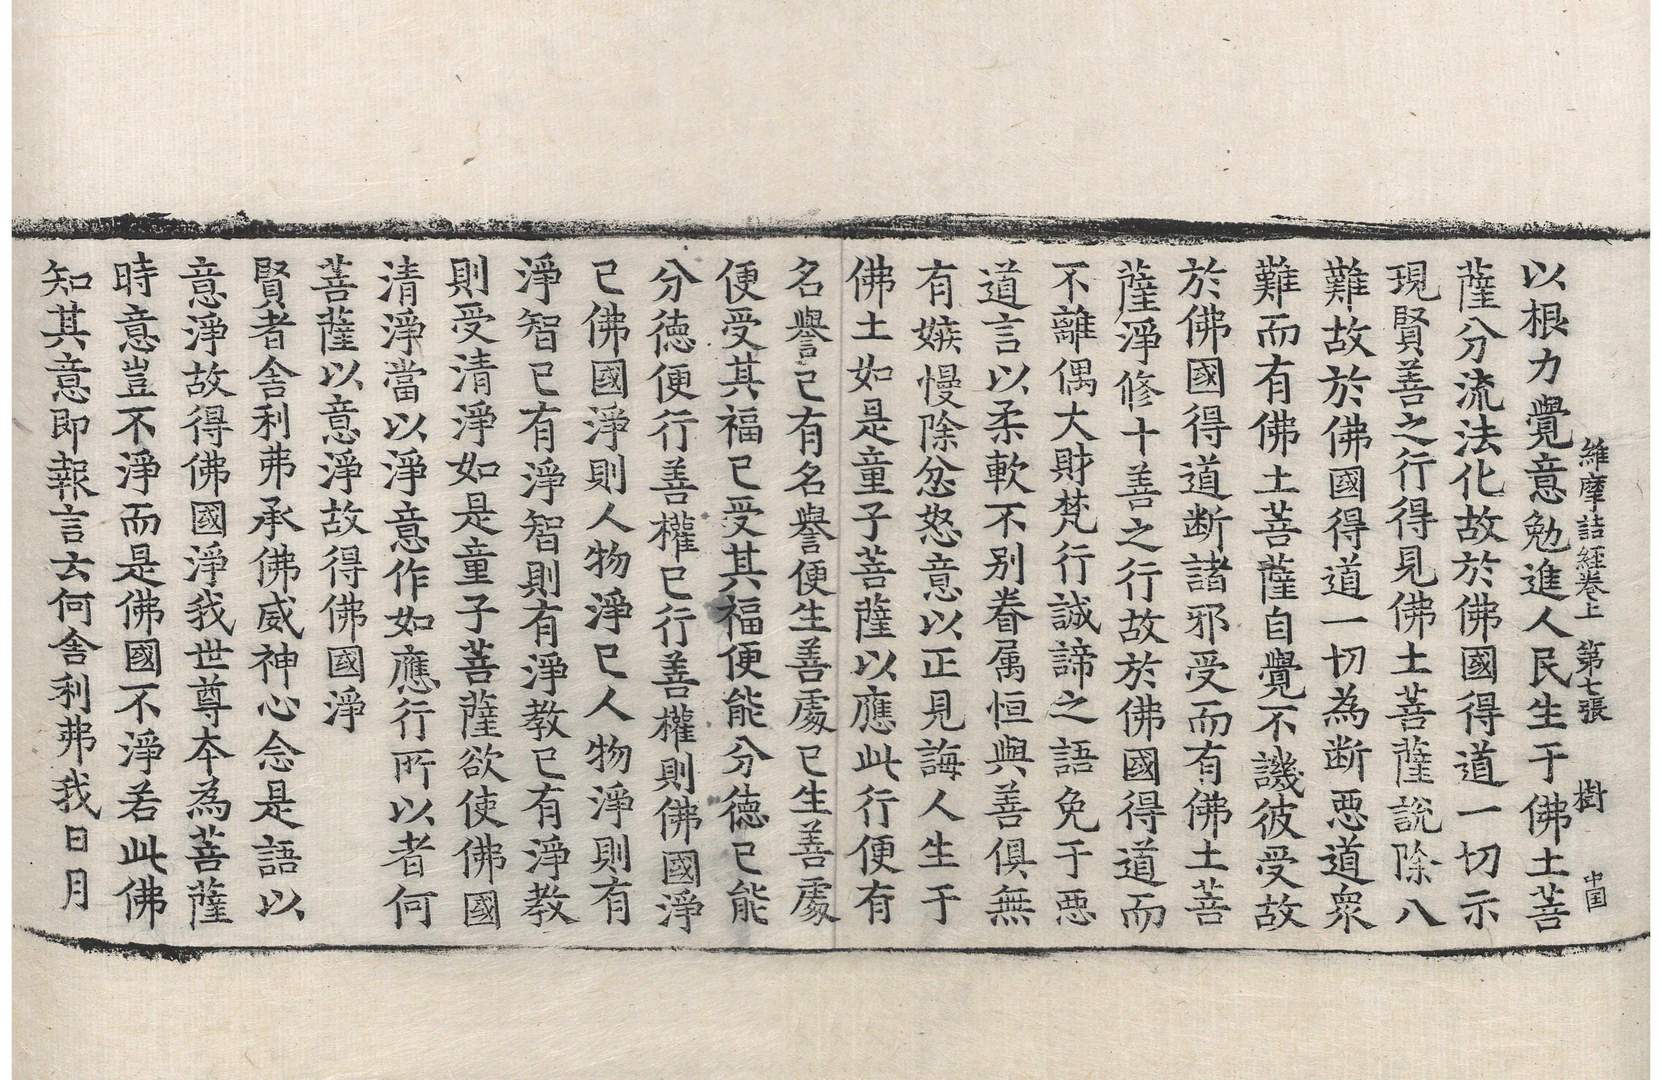 維摩詰経卷上 第七張 樹 中国
以根力覺意勉進人民生于佛土菩
薩分流法化故於佛國得道一切示
現賢善之行得見佛土菩薩說除八
難故於佛國得道一切為断惡道眾
難而有佛土菩薩自覺不譏彼受故
於佛國得道断諸邪受而有佛土菩
薩淨修十善之行故於佛國得道而
不離偶大財梵行誠諦之語免于惡
道言以柔軟不别眷属恒與善俱無
有嫉慢除忿怒意以正見誨人生于
佛土如是童子菩薩以應此行便有
名譽已有名譽便生善處已生善處
便受其福已受其福便能分德已能
分德便行善權已行善權則佛國淨
已佛國淨則人物淨已人物淨則有
淨智已有淨智則有淨教已有淨教
則受清淨如是童子菩薩欲使佛國
清淨當以淨意作如應行所以者何
菩薩以意淨故得佛國淨
賢者舍利弗承佛威神心念是語以
意淨故得佛國淨我世尊本為菩薩
時意豈不淨而是佛國不淨若此佛
知其意即報言云何舍利弗我日月